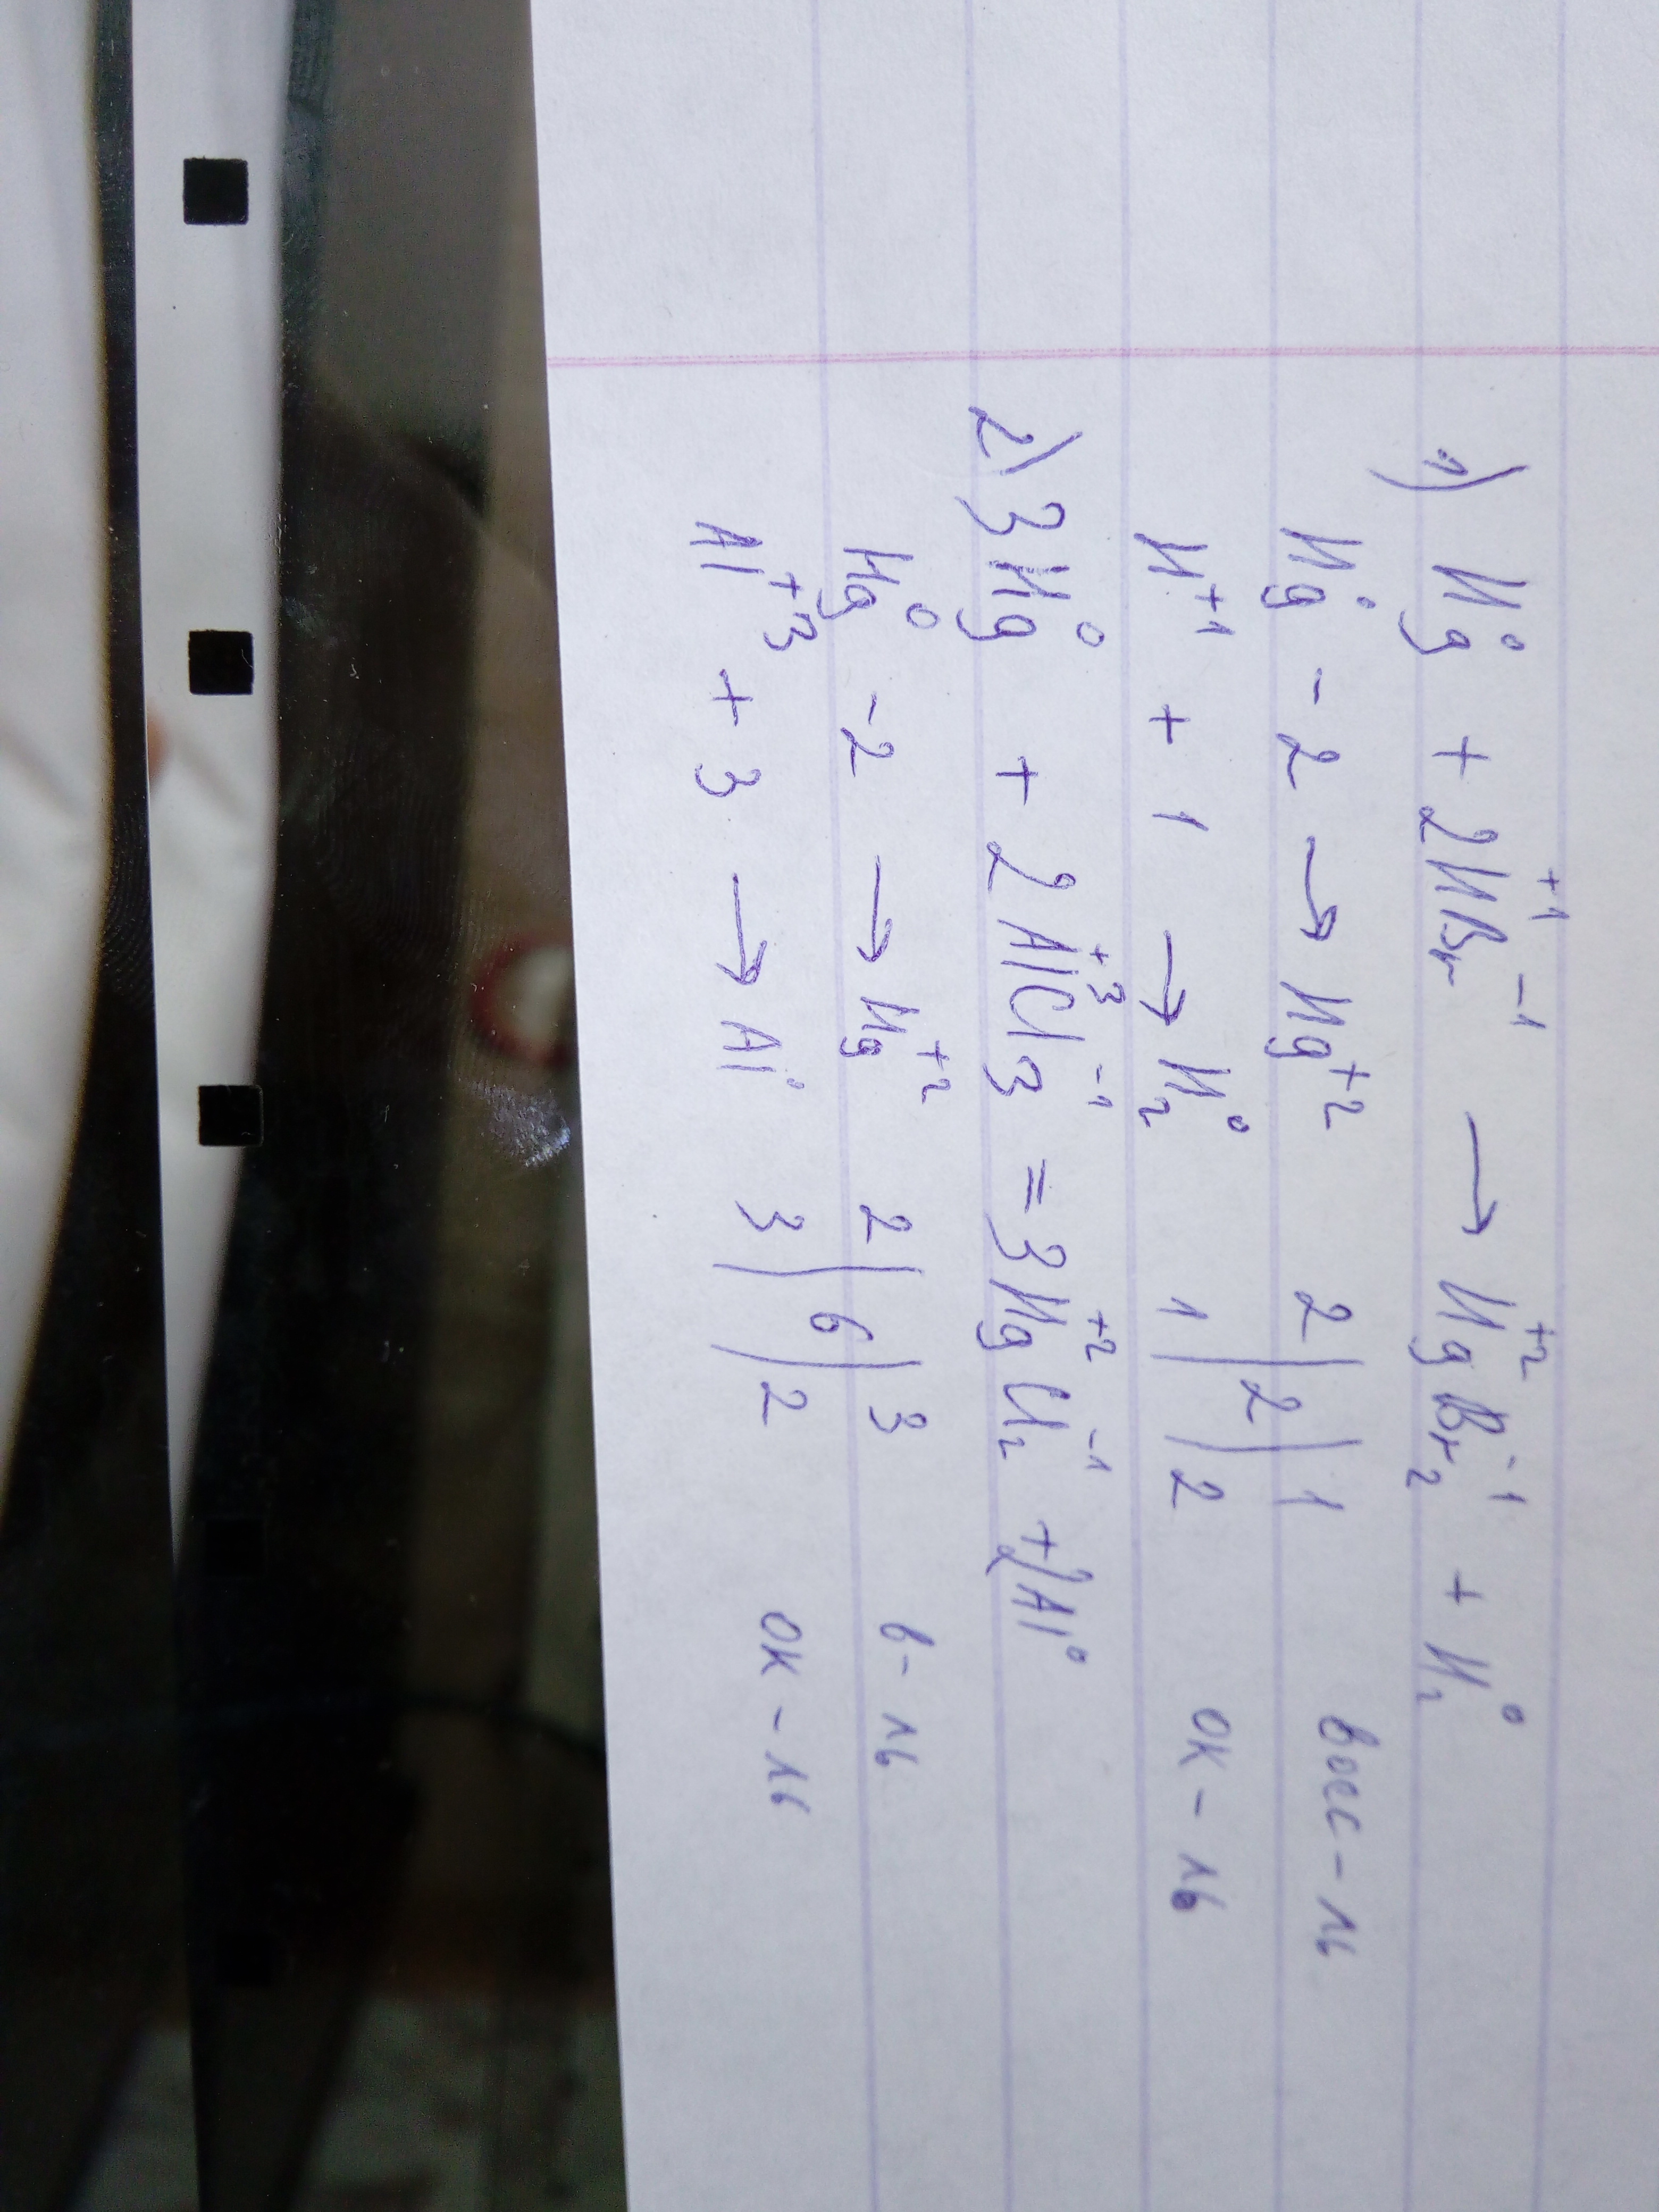 1) Mg⁰ + 2H⁺¹Br⁻¹ → Mg⁺²Br₂⁻¹ + H₂⁰
Mg⁰ - 2 → Mg⁺² 2 | 2 | 1 восс-ль
H⁺¹ + 1 → H₂⁰ 1 | 2 ок-ль
2) 3Mg⁰ + 2Al⁺³Cl₃⁻¹ = 3Mg⁺²Cl₂⁻¹ + 2Al⁰
Mg⁰ -2 → Mg⁺² 2 | 6 | 3 в-ль
Al⁺³ + 3 → Al⁰ 3 | 2 ок-ль